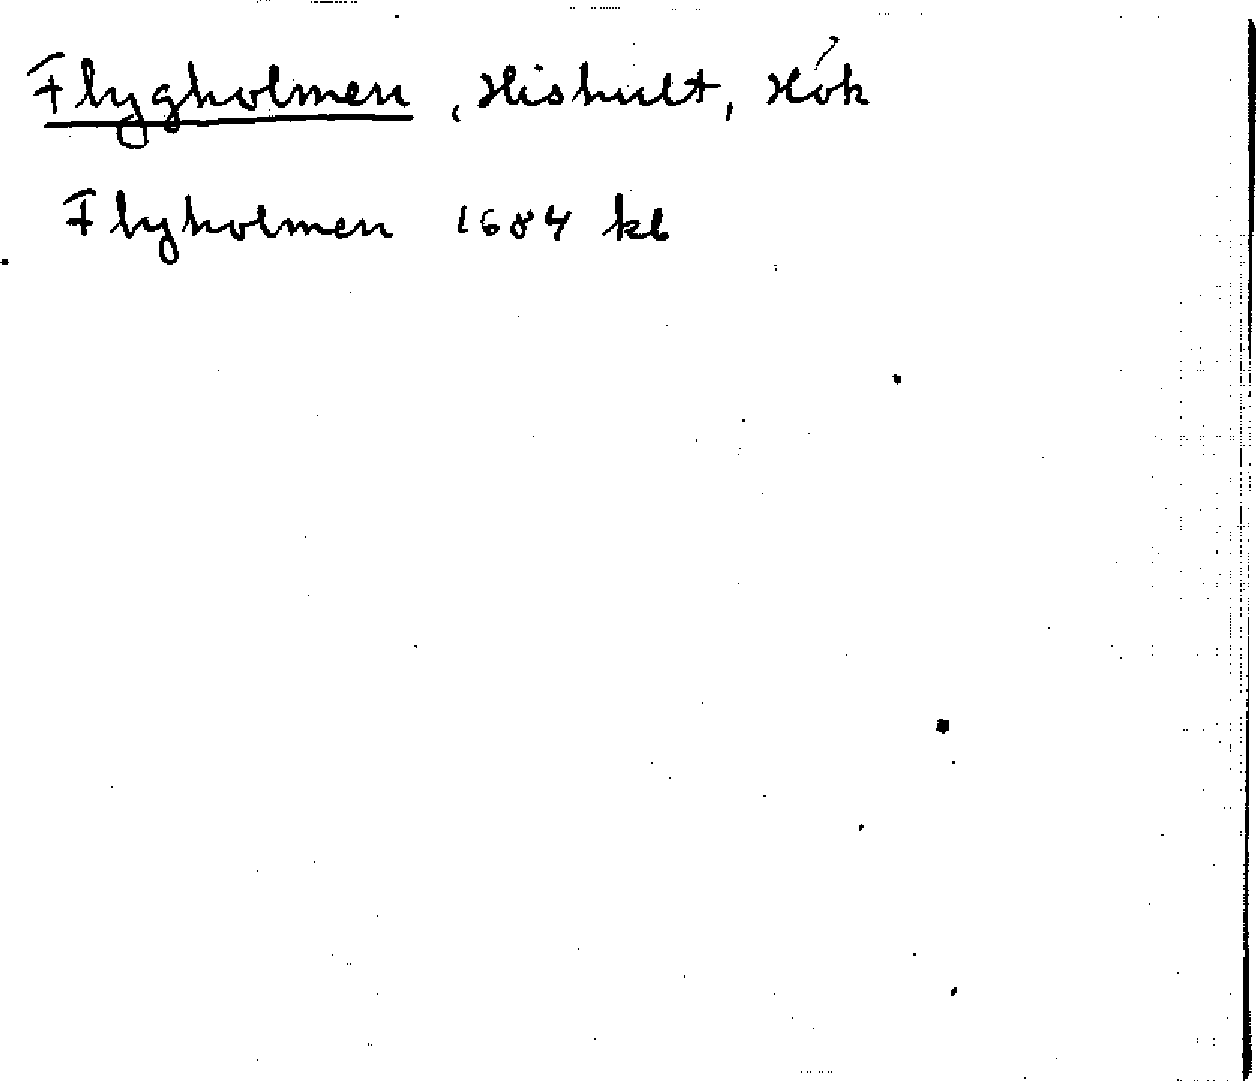 Flygholmen, Hishult, Hök
Flyholmen 1684 kb